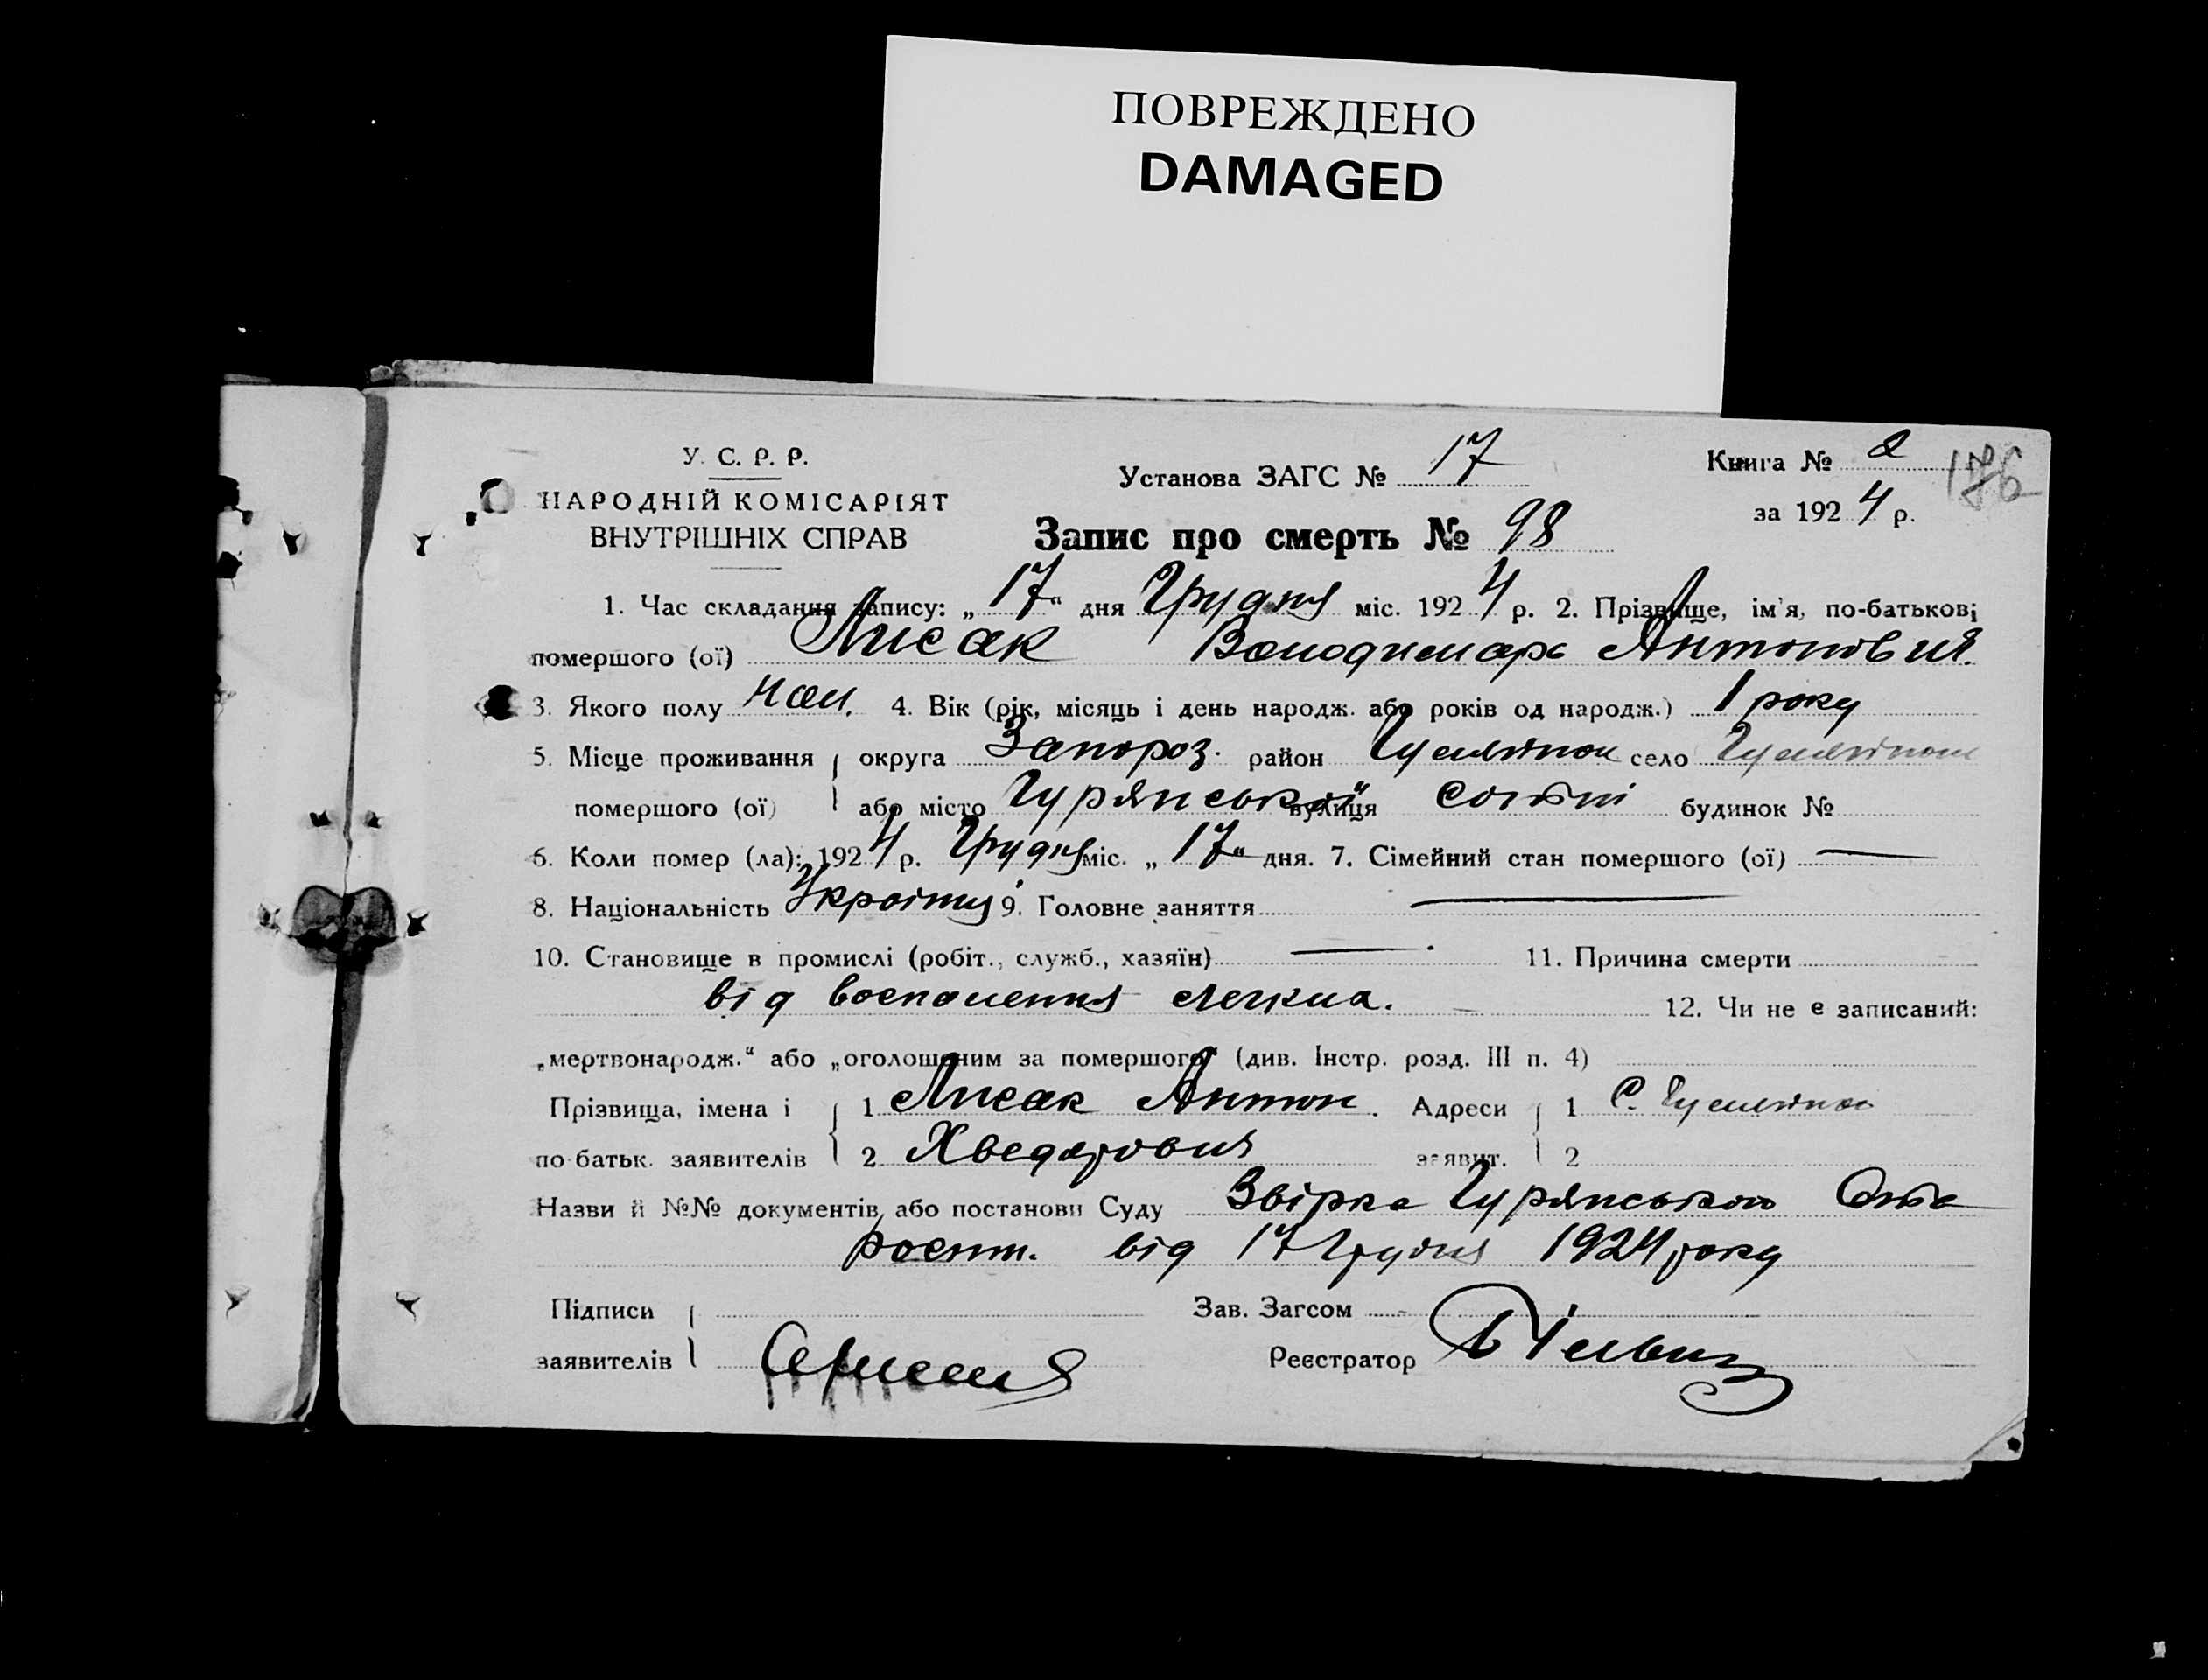 ПОВРЕЖДЕНО
DAMAGED
У. С. Р. Р.
НАРОДНІЙ КОМІСАРІЯТ
ВНУТРІШНІХ СПРАВ
Установа ЗАГС № 17
Книга № 2 176
за 1924 р.
Запис про смерть № 98
1. Час складання запису: „17“ дня Грудня міс. 1924 р. 2. Прізвище, ім'я, по-батькові
помершого (ої) Лисак Володимеръ Антонович.
3. Якого полу чол. 4. Вік (рік, місяць і день народж. або років од народж.) 1 року
5. Місце проживання округа Запороз. район Гуляйпол село Гуляйполе
помершого (ої) або місто Гурянської вулиця сотні будинок №
6. Коли помер (ла): 1924 р. Грудня міс. „17“ дня. 7. Сімейний стан помершого (ої) —
8. Національність Україн. 9. Головне заняття —
10. Становище в промислі (робіт., служб., хазяїн) — 11. Причина смерти
від воспаления легких. 12. Чи не є записаний:
„мертвонародж.“ або „оголошеним за помершого“ (див. Інстр. розд. III п. 4)
Прізвища, імена і 1 Лисак Антон. Адреси 1 с. Гуляйпол
по-батьк. заявителів 2 Хведорович заявит. 2
Назви й №№ документів або постанови Суду Гурянської
від 17 Грудня 1924 року
Підписи Зав. Загсом
заявителів Реєстратор